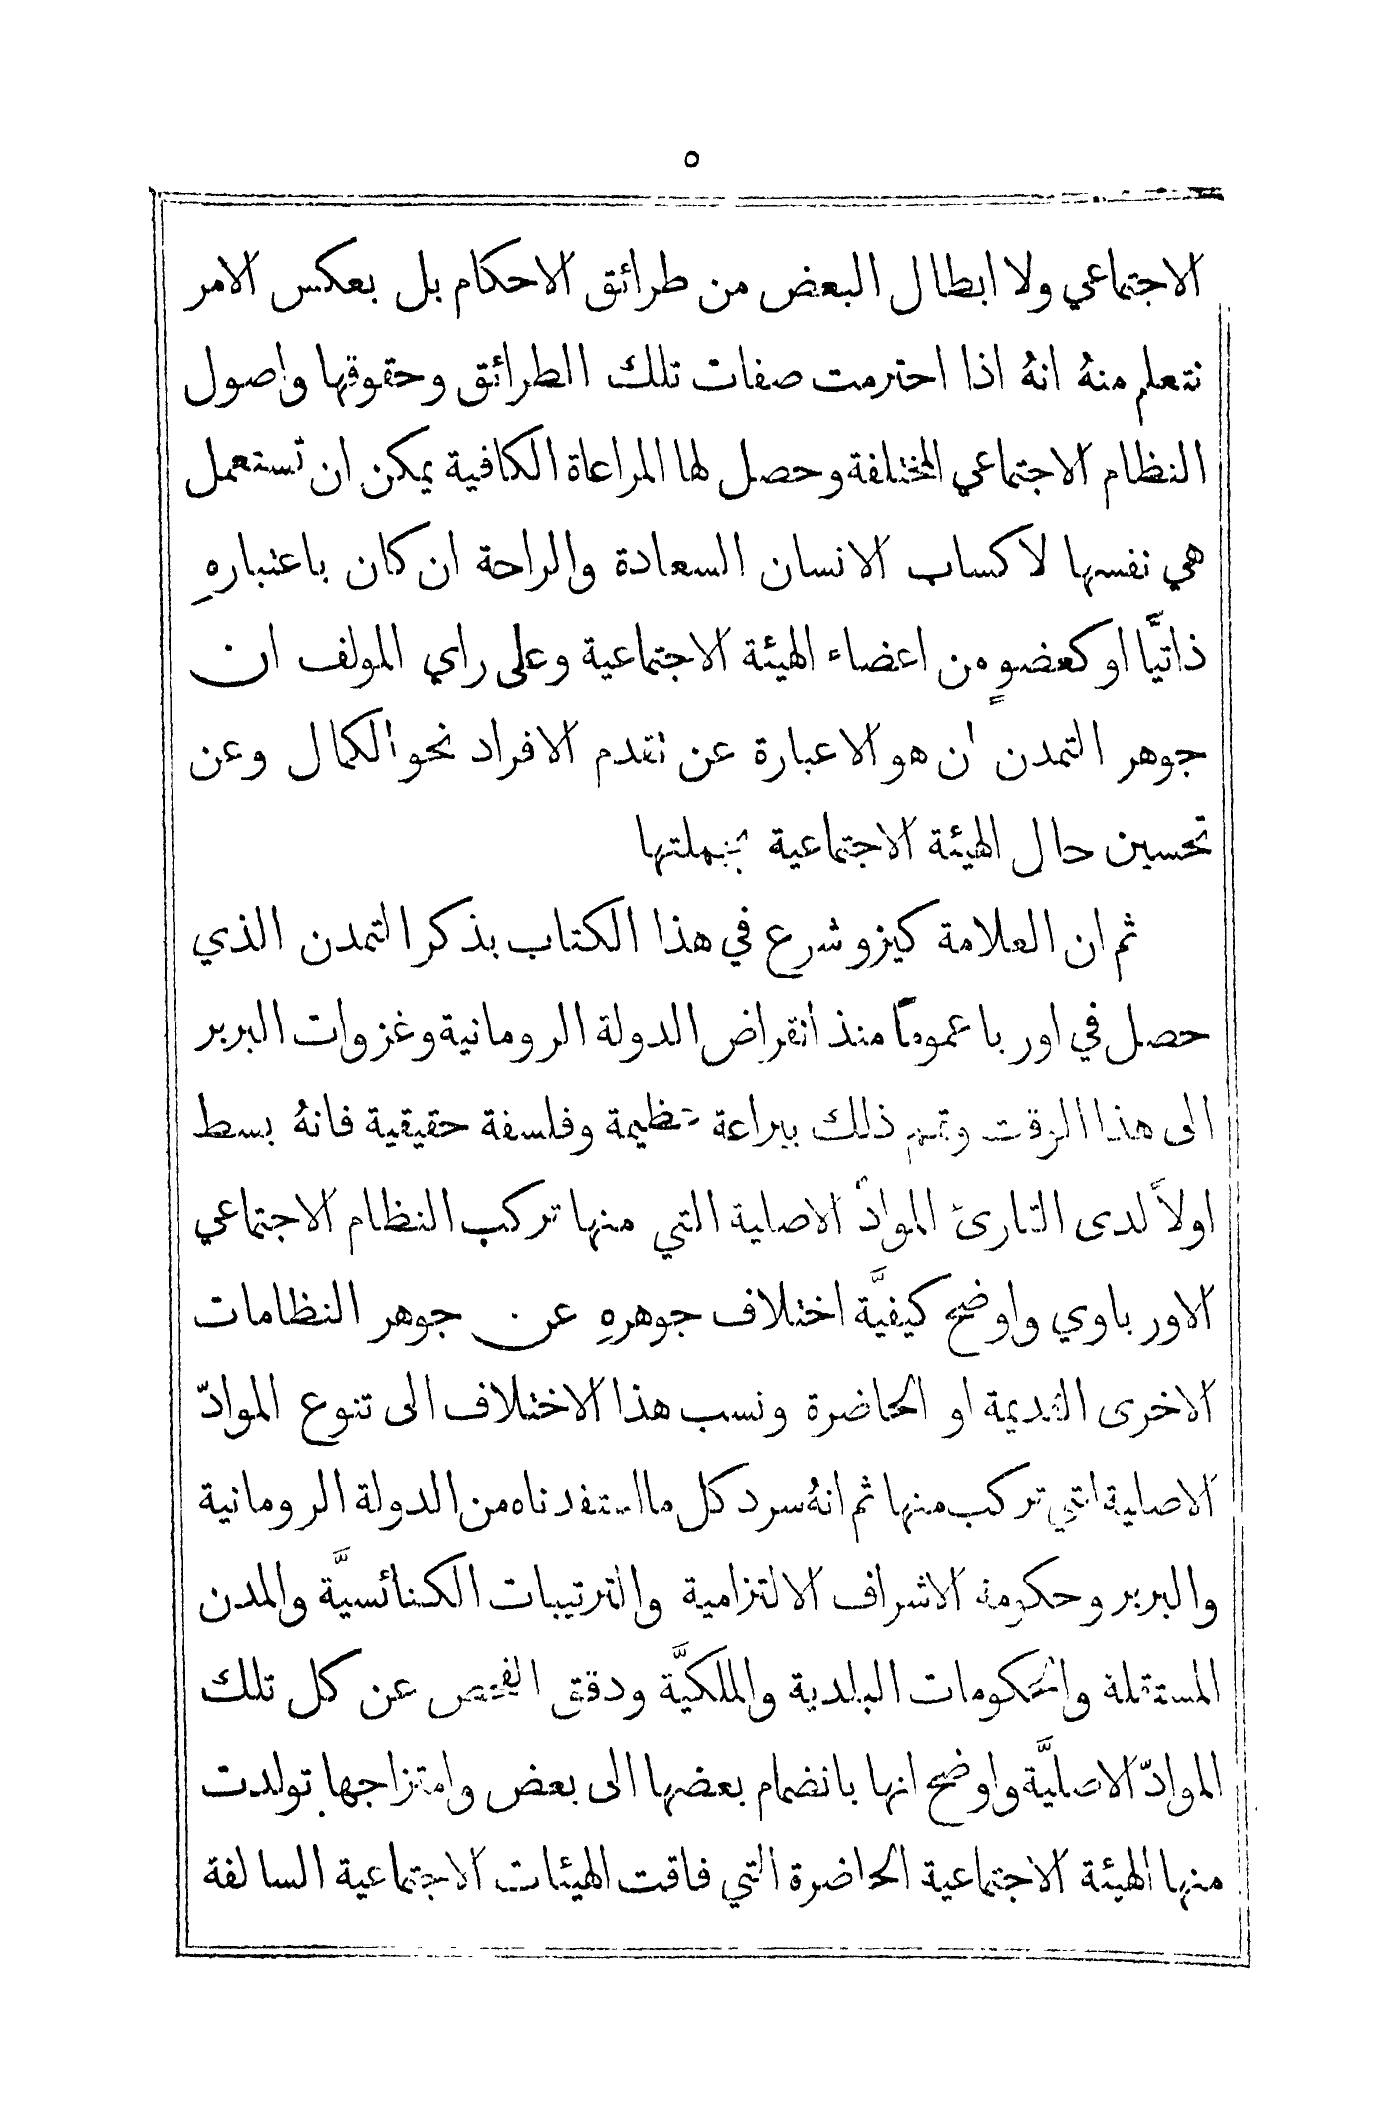 ٥
الاجتماعي ولا ابطال البعض من طرائق الاحكام بل بعكس الامر
نتعلم منهُ انهُ اذا احترمت صفات تلك الطرائق وحقوقها واصول
النظام الاجتماعي المختلفة وحصل لها المراعاة الكافية يمكن ان تستعمل
هي نفسها لاكساب الانسان السعادة والراحة ان كان باعتبارهِ
ذاتيًّا او كعضوٍ من اعضاء الهيئة الاجتماعية وعلى راي المولف ان
جوهر التمدن ان هو الا عبارة عن تقدم الافراد نحو الكمال وعن
تحسين حال الهيئة الاجتماعية بجملتها
ثم ان العلامة كيزو شرع في هذا الكتاب بذكر التمدن الذي
حصل في اوربا عموماً منذ انقراض الدولة الرومانية وغزوات البربر
الى هذا الوقت وتمم ذلك ببراعة عظيمة وفلسفة حقيقية فانهُ بسط
اولاً لدى القارئ الموادّ الاصلية التي منها تركب النظام الاجتماعي
الاورباوي واوضح كيفيَّة اختلاف جوهرهِ عن جوهر النظامات
الاخرى القديمة او الحاضرة ونسب هذا الاختلاف الى تنوع الموادّ
الاصلية التي تركب منها ثم انهُ سرد كل ما استفدناه من الدولة الرومانية
والبربر وحكومة الاشراف الالتزامية والترتيبات الكنائسيَّة والمدن
المستقلة والحكومات البلدية والملكيَّة ودقق الفحص عن كل تلك
الموادّ الاصليَّة واوضح انها بانضمام بعضها الى بعض وامتزاجها تولدت
منها الهيئة الاجتماعية الحاضرة التي فاقت الهيئات الاجتماعية السالفة